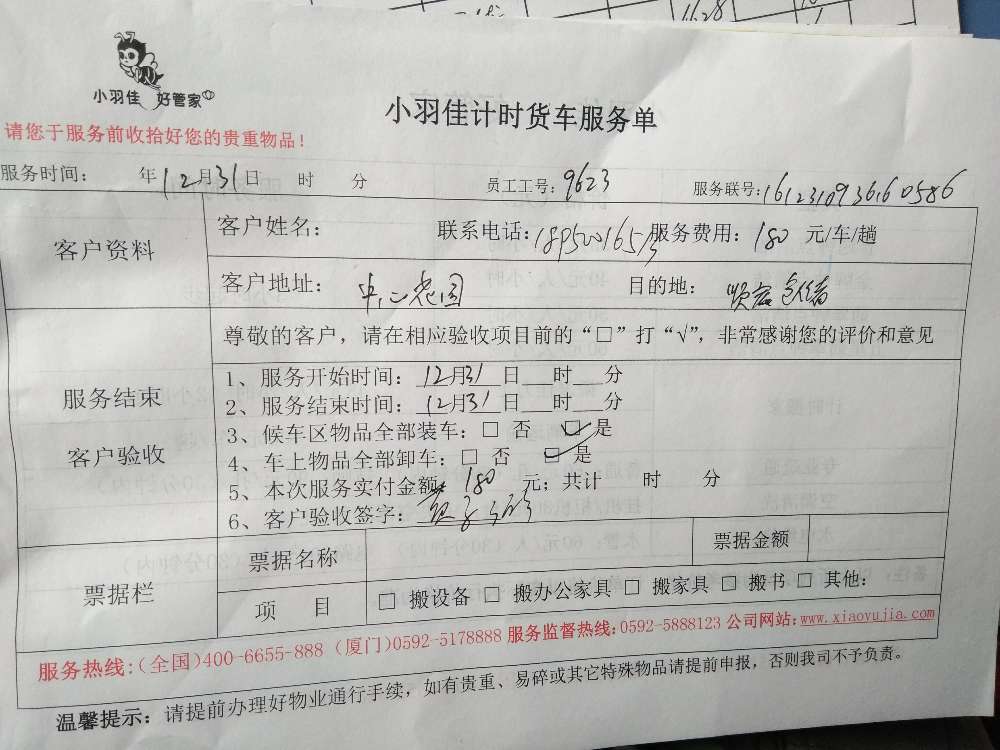 1628
小羽佳 好管家
小羽佳计时货车服务单
请您于服务前收拾好您的贵重物品！
服务时间： 年12月31日 时 分 员工工号：9623 服务联号：161231093616 0586
客户资料
客户姓名： 联系电话： 服务费用：180 元/车/趟
客户地址： 目的地：
尊敬的客户，请在相应验收项目前的“□”打“√”，非常感谢您的评价和意见
服务结束
客户验收
1、服务开始时间：12月31日___时___分
2、服务结束时间：12月31日___时___分
3、候车区物品全部装车：□ 否 ☑ 是
4、车上物品全部卸车：□ 否 ☑ 是
5、本次服务实付金额：180 元；共计 时 分
6、客户验收签字：
票据栏
票据名称 票据金额
项 目 □ 搬设备 □ 搬办公家具 □ 搬家具 □ 搬书 □ 其他：
服务热线:(全国)400-6655-888 (厦门)0592-5178888 服务监督热线:0592-5888123 公司网站:www.xiaoyujia.com
温馨提示：请提前办理好物业通行手续，如有贵重、易碎或其它特殊物品请提前申报，否则我司不予负责。